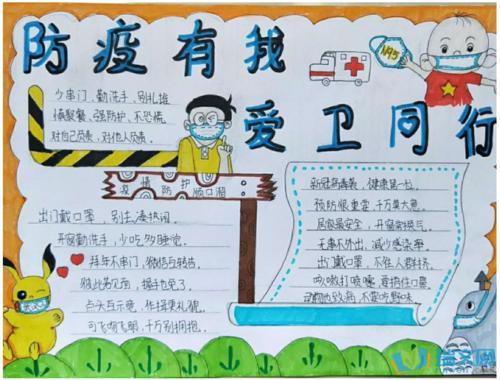 防疫有我
N95
爱卫同行
少串门、勤洗手、别扎堆
慎聚餐、强防护、不恐慌
对自己负责、对他人负责.
疫情防护顺口溜
出门戴口罩,别去凑热闹.
开窗勤洗手,少吃多睡觉.
拜年不串门,微信与转告.
彼此若见面,握手也免了.
点头互示意,作揖更礼貌.
可飞吻飞,千万别拥抱.
新冠病毒袭,健康第一位.
预防很重要,千万莫大意.
居家最安全,开窗常换气.
无事不外出,减少感染率.
出门戴口罩,不往人群挤.
咳嗽打喷嚏,要捂住口鼻.
动物也致病,不要吃野味.